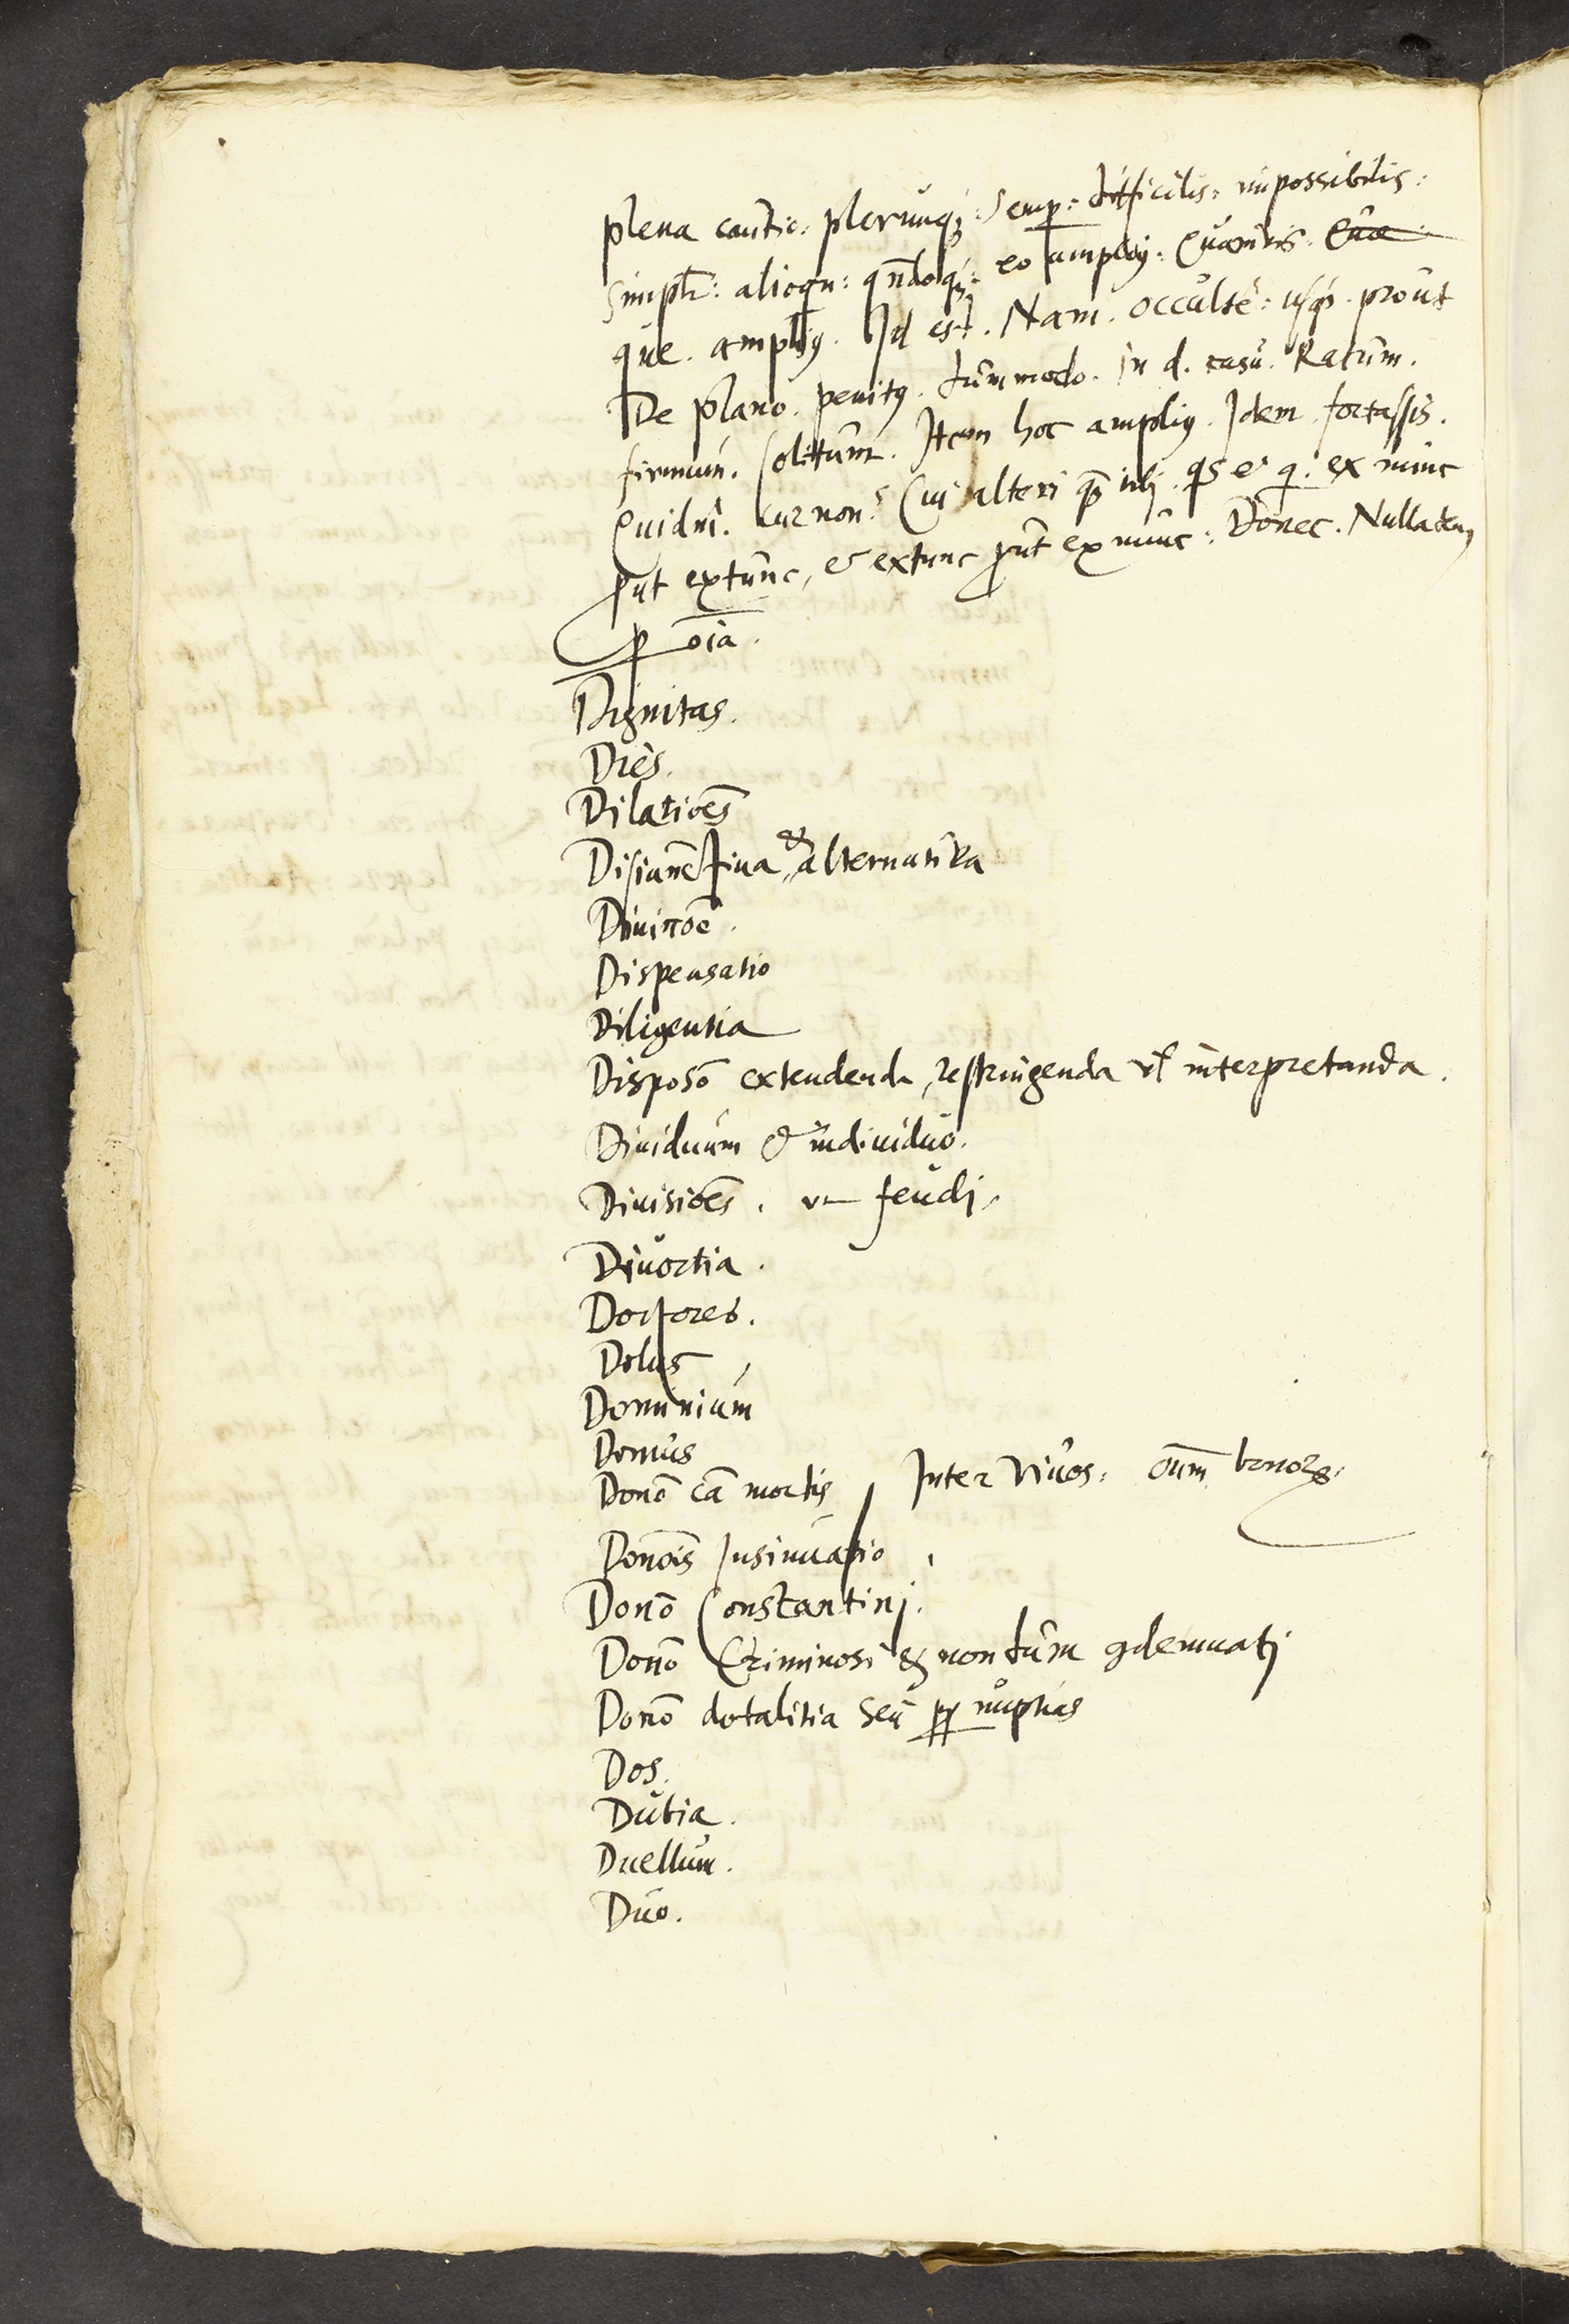 plena cautio: plerunq3: Semp: difficilis: impossibilis:
simplr: alioqn: qñdoq3: eo ampli9: Quamvis:
que. ampli9. Id est. Nam. occultè: usq3. prout
De plano. penit9. tummodo. in d. casu. Ratum.
firmum. solitum. Item hoc ampli9. Idem. fortassis.
Quidni. cur non? Cui alteri ex nunc
put extunc, & extunc put ex nunc: Donec. Nullaten9
p oiã.
Dignitas.
Dies.
Dilatiões
Disiunctiua & alternatiua
Dispensatio
Diligentia
Disposõ extendenda, restringenda vl interpretanda.
Diuiduum & indiuiduũ.
Diuisiões. feudi.
Diuortia.
Doctores.
Dolus
Dominium
Domus
Donõ cã mortis Inter viuos: oium bonor.
Donõis Insinuatio
Donõ Constantinj.
Donõ Criminosi & nontum 9demnatj
Donõ dotalitia seu pp nuptias
Dos.
Dubia.
Duellum.
Duo.